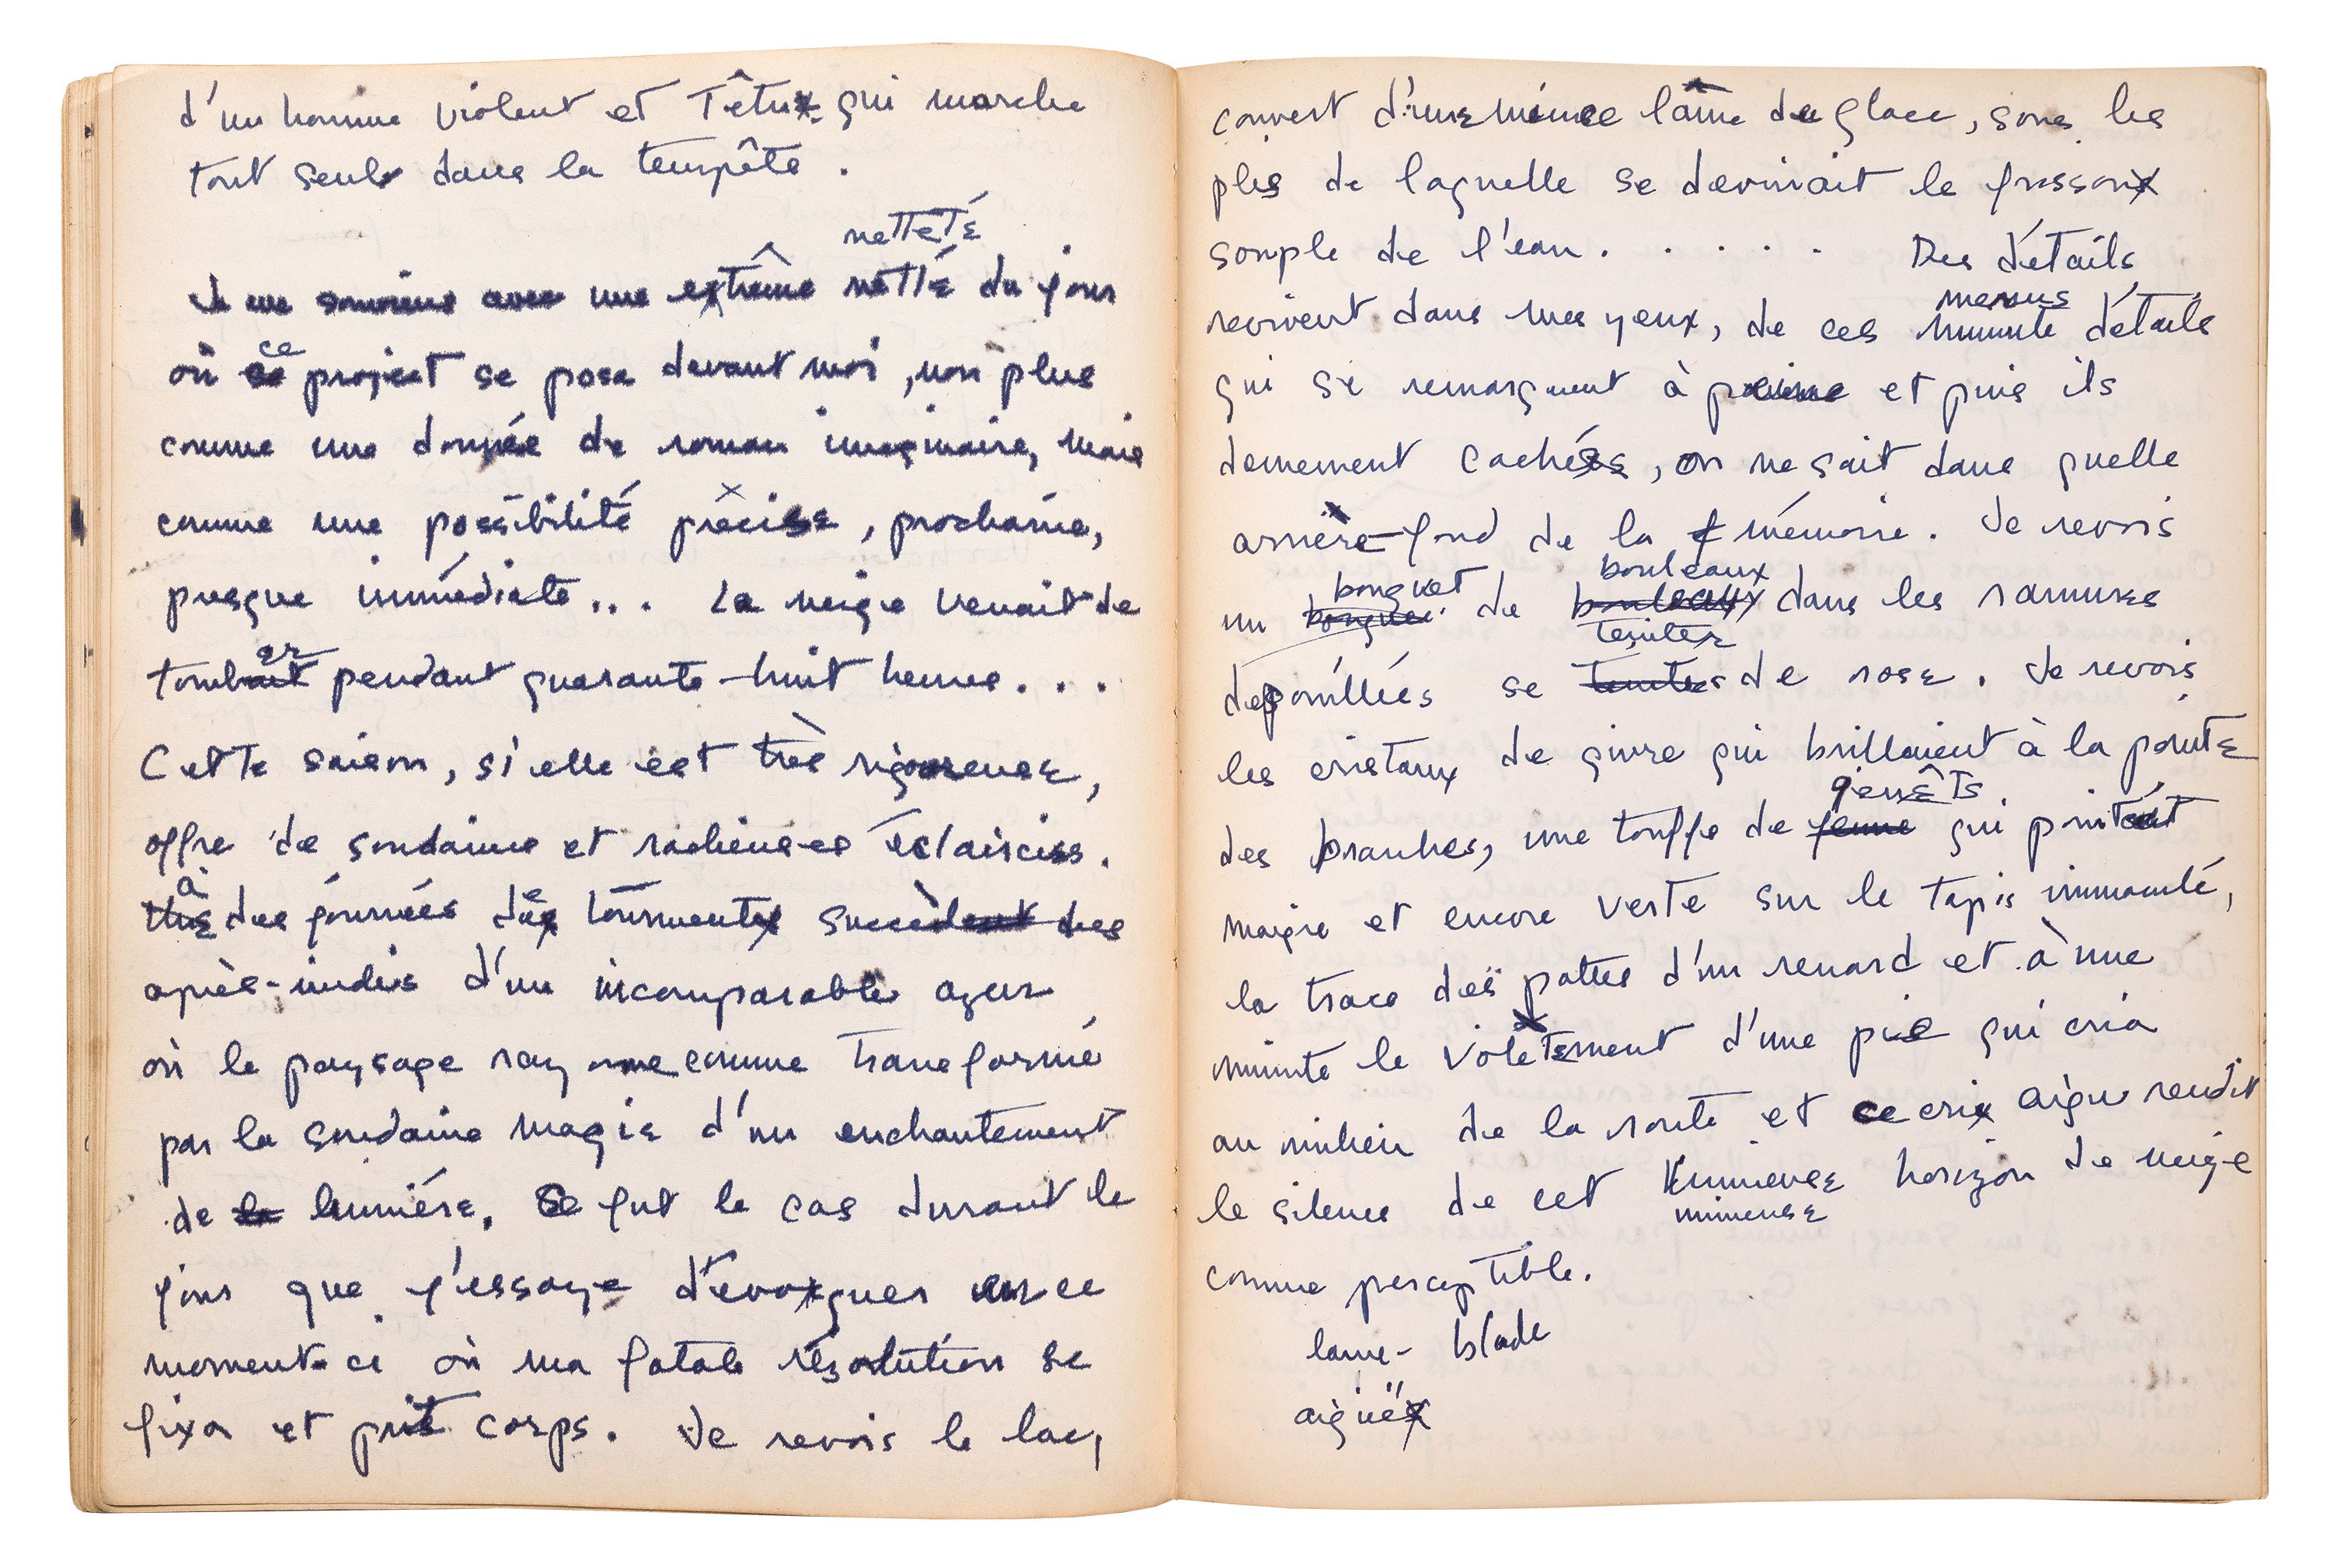 d'un homme violent et Têtux qui marche
tout seul dans la tempête .
netteté
Je me souviens avec une extrême netté du jour
ce
où se project se pose devant moi , non plus
comme une donnée de roman imaginaire, mais
comme une possibilité précise , prochaine,
presque immédiate... La neige venait de
er
tombait pendant quarante-huit heures. . .
Cette saison, si elle est très rigoureuse,
offre de soudaine et radieuses éclaircies.
à
des journées de tourmente succèdent des
après-midis d'un incomparable azur
où le paysage rayonne comme transformé
par la soudaine magie d'un enchantement
de la lumière. Se fut le cas durant le
jour que j'essaye d'évoquer en ce
moment-ci où ma fatale résolution se
fixa et prit corps. Je revois le lac,
couvert d'une mince lame de glace, sous les
plis de laquelle se devinait le frisson
souple de l'eau. . . . . . Des détails
menus
revivent dans mes yeux, de ces minute détails
qui se remarquent à peine et puis ils
demement cachés, on ne sait dans quelle
arrière-fond de la mémoire. Je revois
bouquet bouleaux
un bouquet de bouleaux dans les ramures
teinter
depouillées se teintes de rose. Je revois
les cristaux de givre qui brillaient à la pointe
genêts
des branches, une touffe de qui pointait
maigre et encore verte sur le tapis immaculé,
la trace des pattes d'un renard et à une
minute le voletement d'une pie qui cria
au milieu de la route et ce cri aigu rendit
le silence de cet immense horizon de neige
immense
comme perceptible.
lame- blade
aiguëx